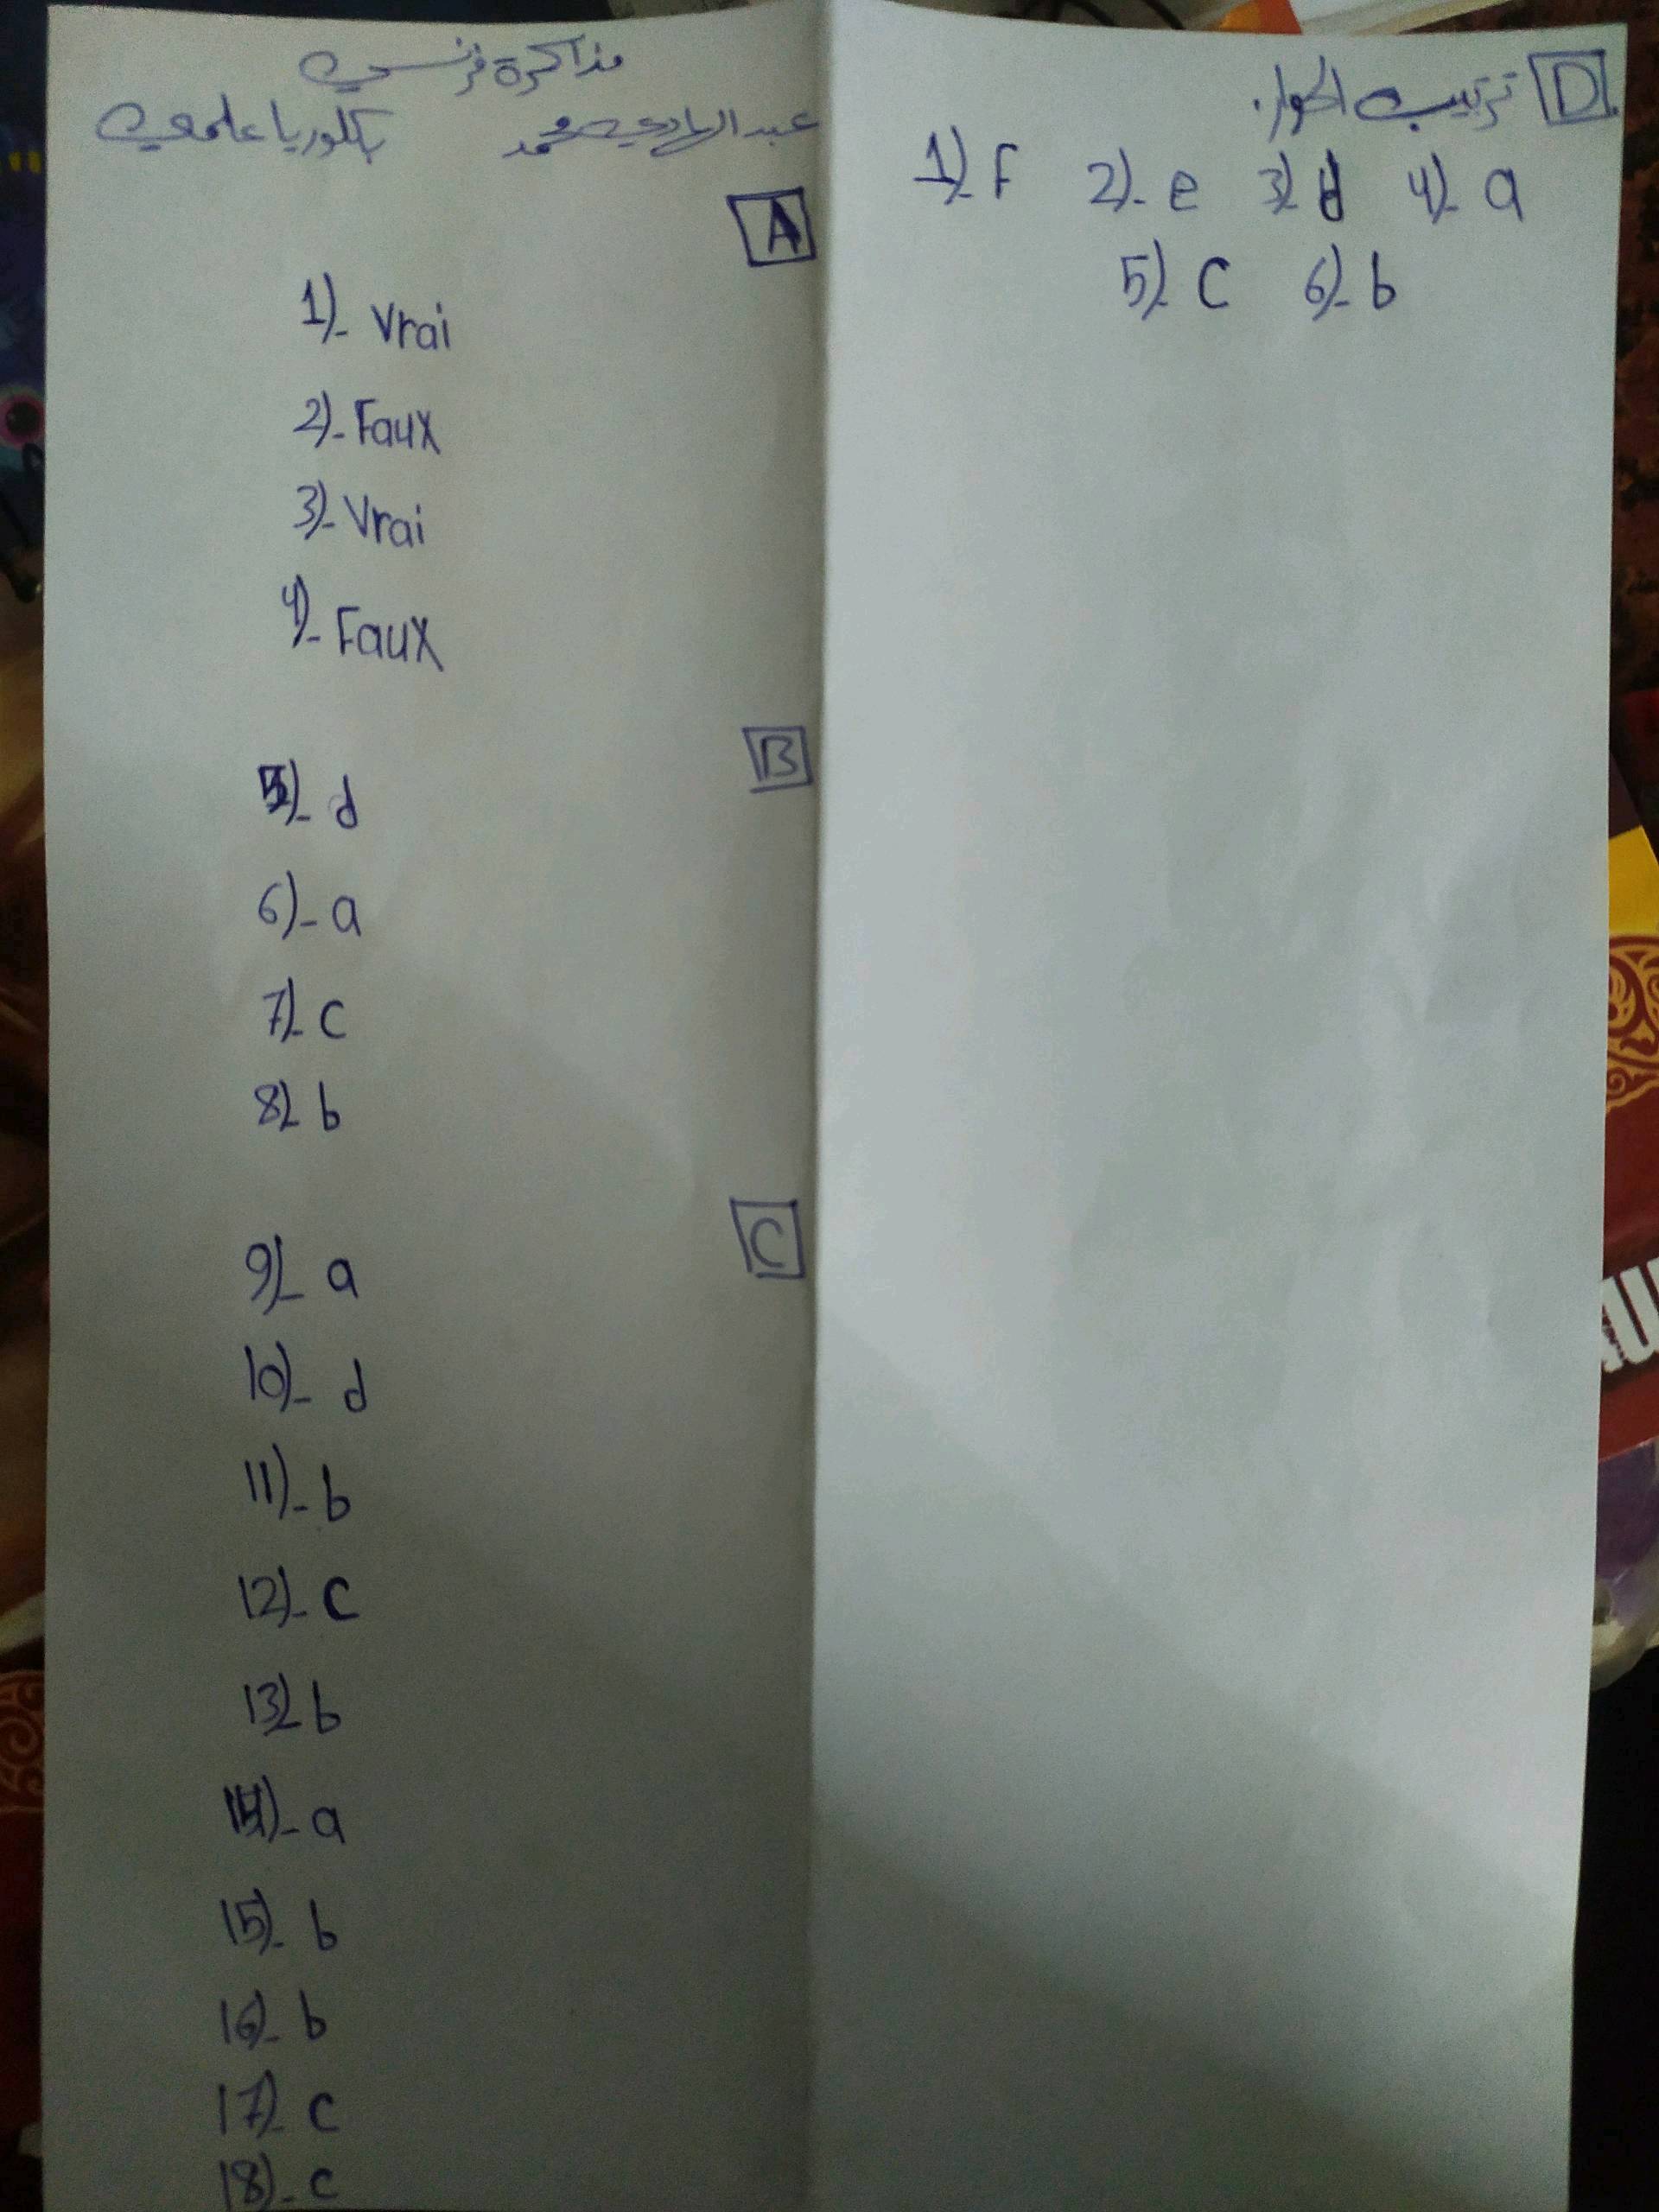 مذاكرة فرنسي
عبد الهادي محمد بكلوريا علمي
A
1)- Vrai
2)- Faux
3)- Vrai
4)- Faux
B
5)- d
6)- a
7)- c
8)- b
C
9)- a
10)- d
11)- b
12)- c
13)- b
14)- a
15)- b
16)- b
17)- c
18)- c
D ترتيب الحوار.
1)- f 2)- e 3)- d 4)- a
5)- c 6)- b